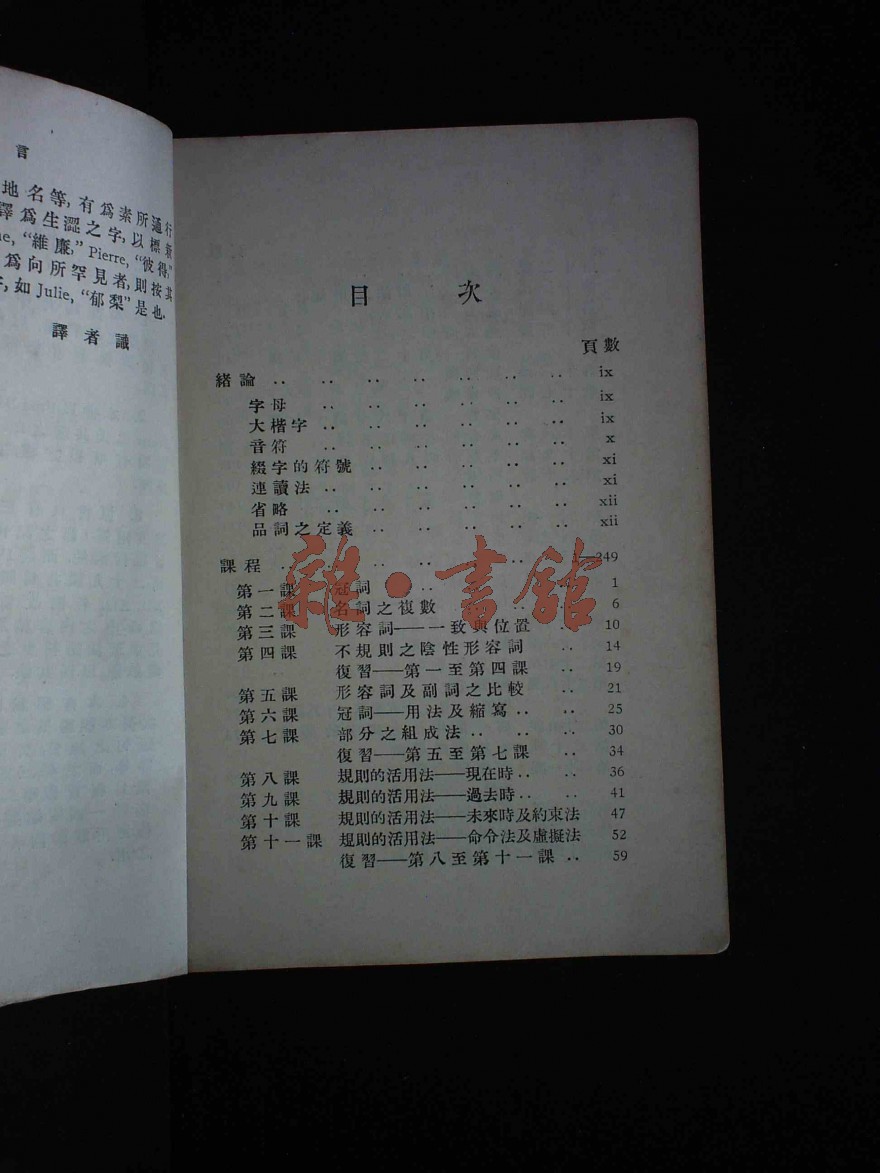 言
地名等，有爲素所通行
譯爲生澀之字，以標新
"維廉，" Pierre, "彼得，"
爲向所罕見者，則按其
如 Julie, "郁梨" 是也.
譯者識
目 次
頁數
緒論 .. .. .. .. .. .. .. ix
字母 .. .. .. .. .. .. ix
大楷字 .. .. .. .. .. .. ix
音符 .. .. .. .. .. .. x
綴字的符號 .. .. .. .. .. xi
連讀法 .. .. .. .. .. .. xi
省略 .. .. .. .. .. .. xii
品詞之定義 .. .. .. .. .. xii
課程 .. .. .. .. .. .. 1—249
第一課 冠詞 .. .. .. 1
第二課 名詞之複數 .. .. 6
第三課 形容詞——一致與位置 .. 10
第四課 不規則之陰性形容詞 .. 14
復習——第一至第四課 .. 19
第五課 形容詞及副詞之比較 .. 21
第六課 冠詞——用法及縮寫 .. .. 25
第七課 部分之組成法 .. .. .. 30
復習——第五至第七課 .. 34
第八課 規則的活用法——現在時 .. .. 36
第九課 規則的活用法——過去時 .. .. 41
第十課 規則的活用法——未來時及約束法 47
第十一課 規則的活用法——命令法及虛擬法 52
復習——第八至第十一課 .. 59
雜·書館